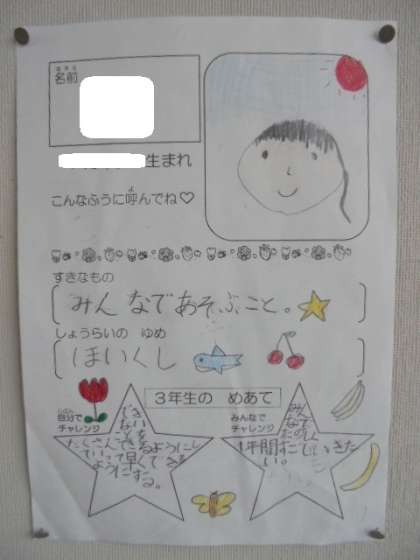 なまえ
名前
生まれ
こんなふうに呼んでね♡
すきなもの
みんなであそぶこと。
しょうらいの ゆめ
ほいくし
3年生の めあて
じぶん
自分で
チャレンジ
でき
ないを
たくさんできるようにし
ていって早くできる
ようにする。
みんなで
チャレンジ
みん
なで
たのし
1年間すご
いきた
い。